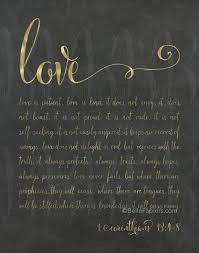 love
love is patient, love is kind. it does not envy, it does
not boast, it is not proud. it is not rude, it is not
self-seeking, it is not easily angered, it keeps no record of
wrongs. love does not delight in evil but rejoices with the
truth. it always protects, always trusts, always hopes,
always perseveres. love never fails. but where there are
prophecies, they will cease; where there are tongues, they
will be stilled; where there is knowledge, it will pass away.
1 corinthians 13:4-8